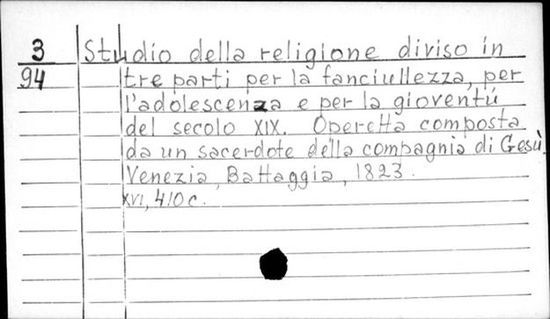 3 Studio della religione diviso in
94 tre parti per la fanciullezza, per
l'adolescenza e per la gioventú
del secolo XIX. Operetta composta
da un sacerdote della compagnia di Gesù.
Venezia, Battaggia, 1823.
XVI, 410 c.